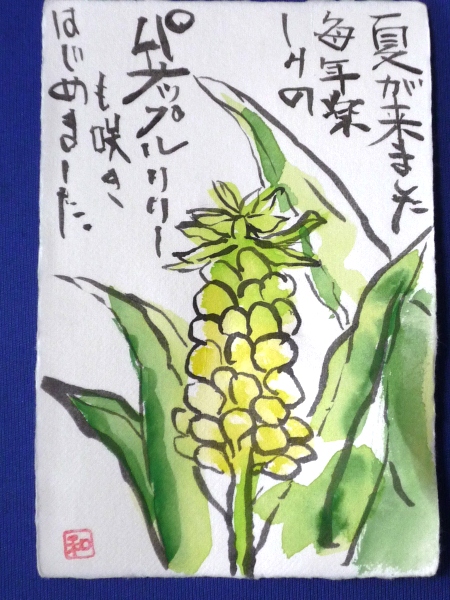 夏が来ました
毎年楽
しみの
パイナップルリリー
も咲き
はじめました。
和